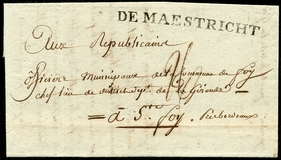 DE MAESTRICHT
Aux Republicains
officiers Municipaux de la Commune de foy
chef lieu de district Dept. de la Gironde
= à Ste. foy,